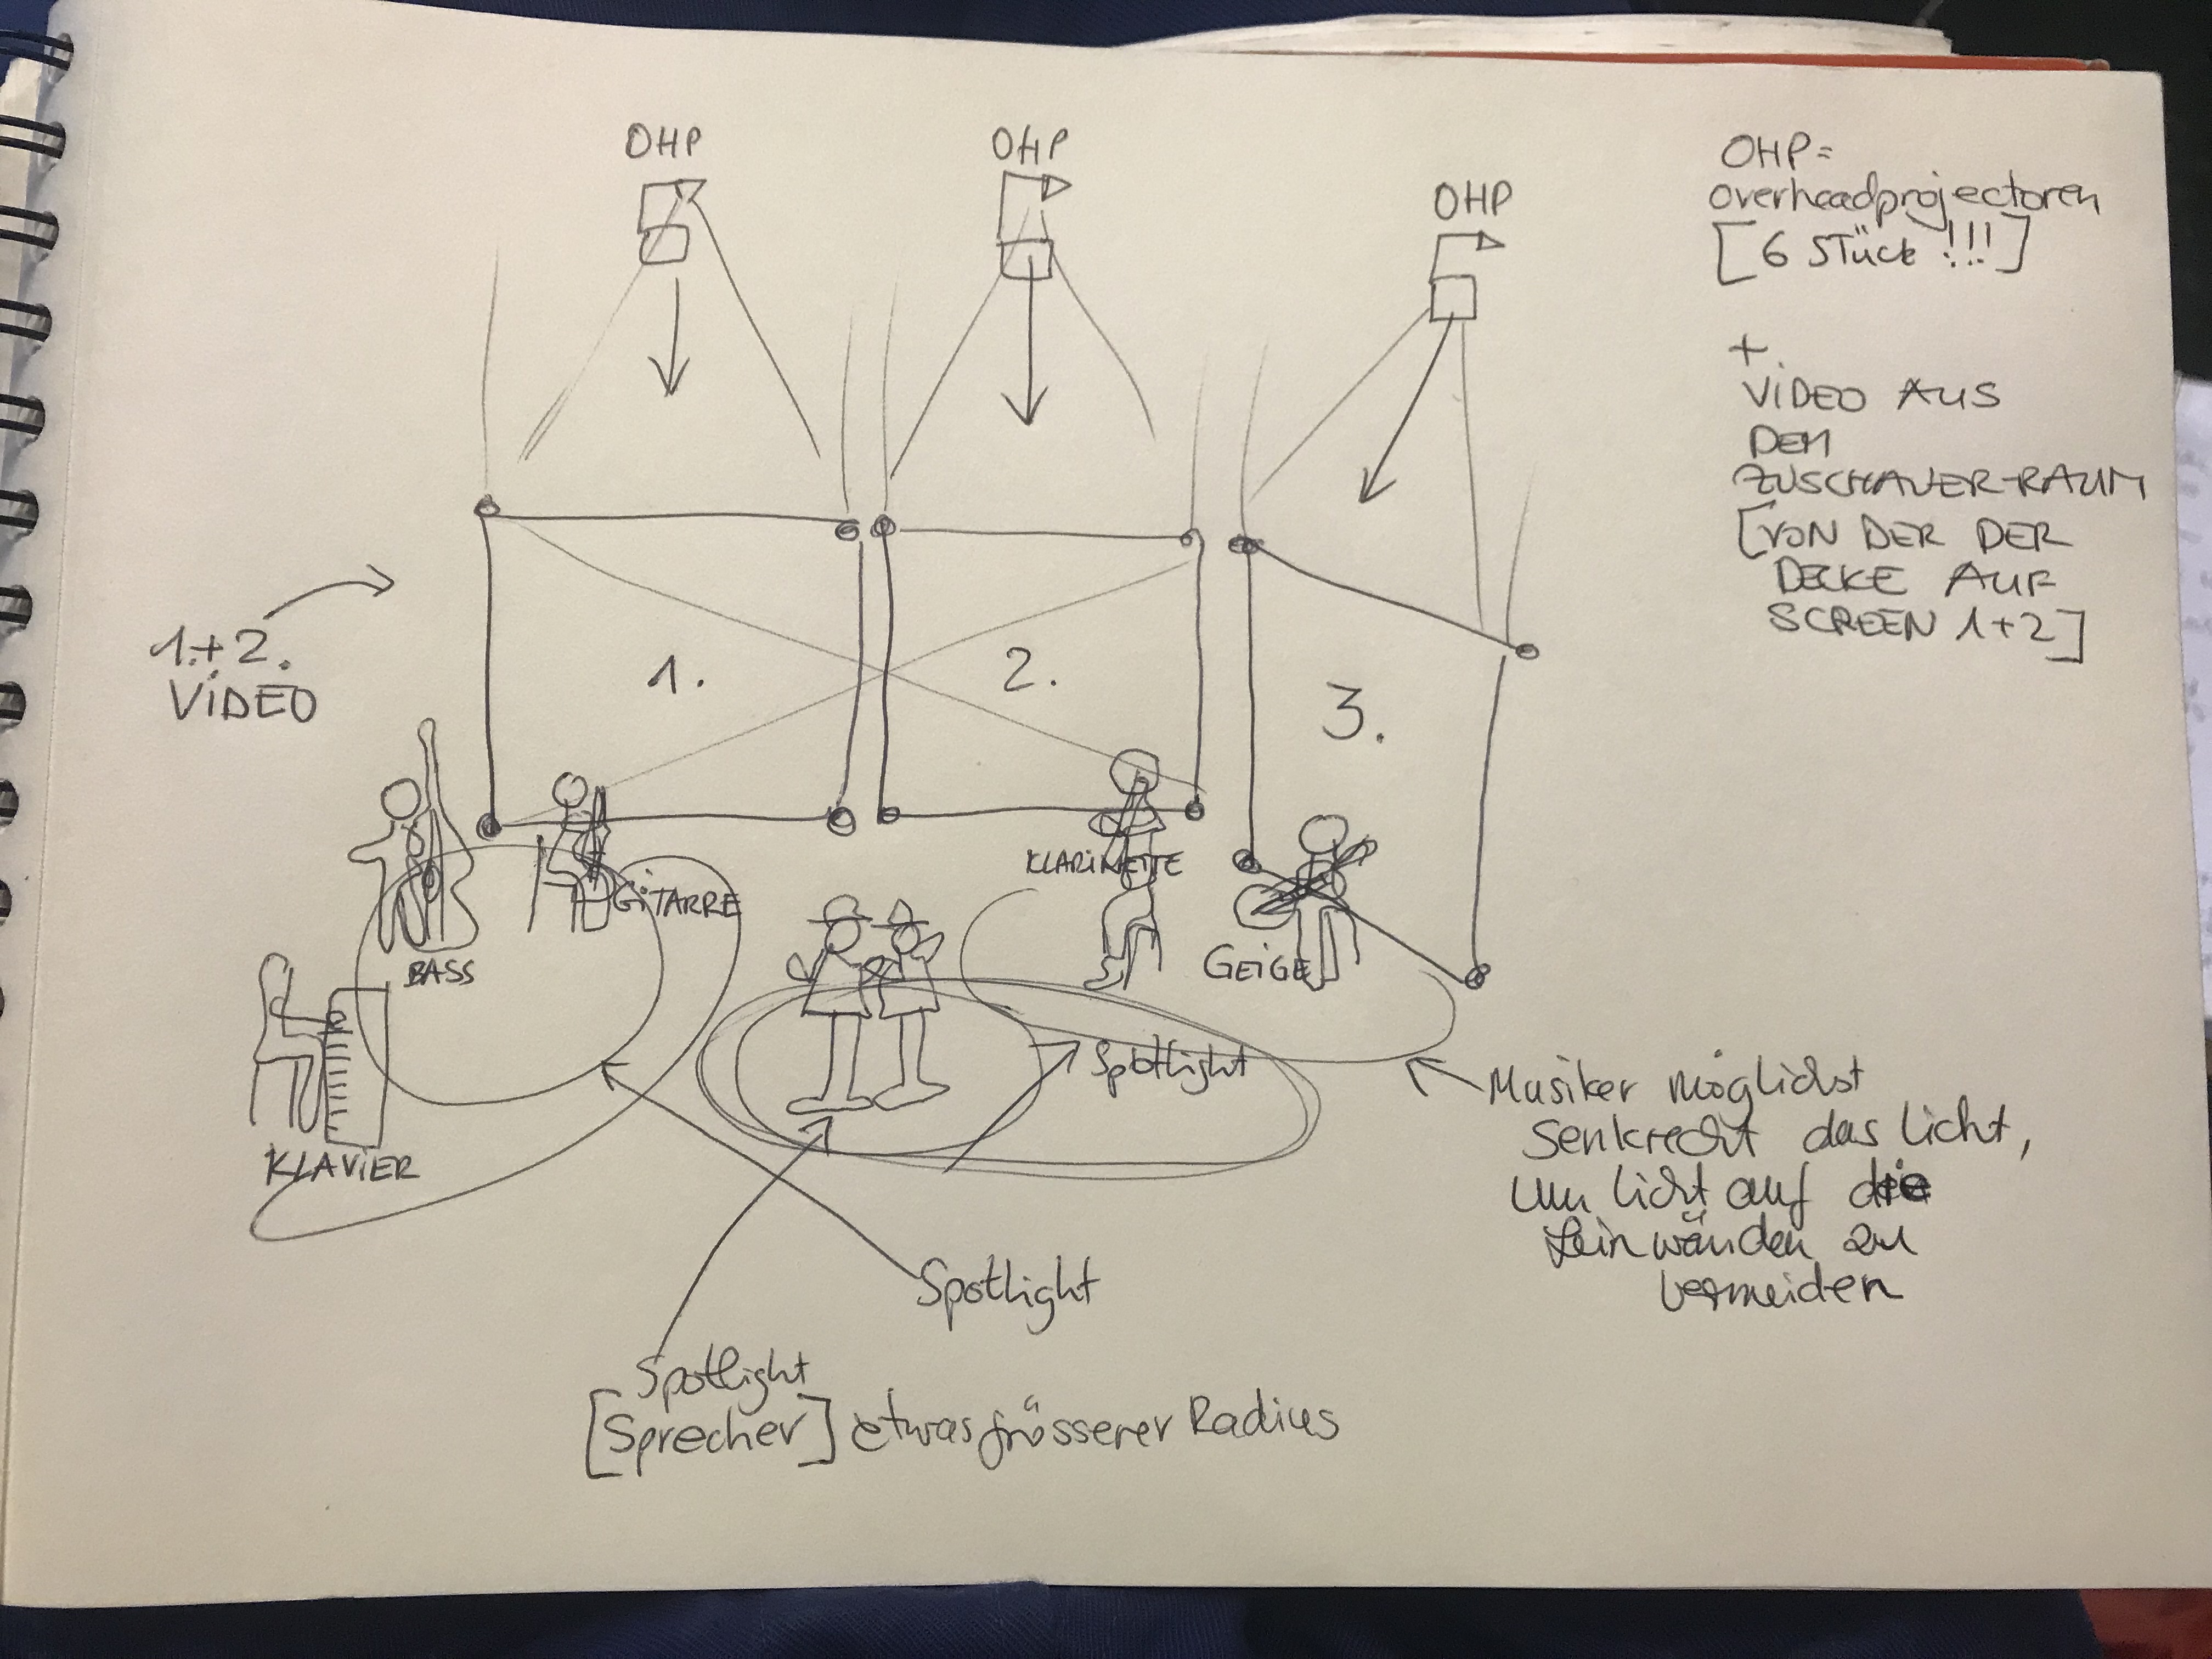 OHP
OHP
OHP
OHP =
overheadprojectoren
[6 Stück !!!]
+
VIDEO AUS
DEM
ZUSCHAUER-RAUM
[VON DER DER
DECKE AUF
SCREEN 1+2]
1.+2.
VIDEO
1.
2.
3.
KLARINETTE
GITARRE
BASS
GEIGE
KLAVIER
Spotlight
Musiker möglichst
senkrecht das Licht,
um Licht auf die
Leinwänden zu
vermeiden
Spotlight
Spotlight
[Sprecher] etwas grösserer Radius